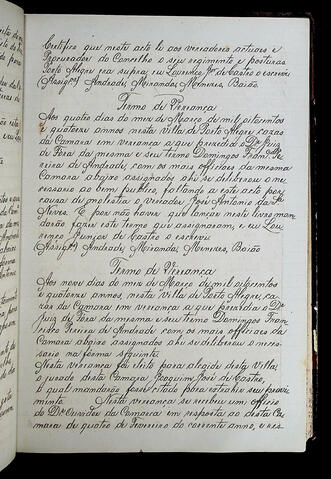 Certifico que neste acto li aos vereadores actuaes e
Procurador do Concelho o seu regimento e posturas
Porto Alegre era supra, eu Lourenço Jr. de Castro o escrevi
Assigos. Andrade, Miranda, Menezes, Baião
Termo de Vereança
Aos quatro dias do mez de Março de mil oitocentos
e quatorze annos nesta villa de Porto Alegre cazas
da Camara em vereança a que prezedio o Dr. Juiz
de Fora da mesma e seu termo Domingos Franco. Pe-
reira de Andrade, com os mais officiaes da mesma
Camara abaixo assignados ahi se deliberou o ne-
cessario ao bem publico, faltando a este acto por
causa de molestia o vereador José Antonio da Sa.
Neves. E por não haver que lançar neste livro man-
darão fazer este termo que assignarão, e eu Lou-
renço Junior de Castro o escrevi
Assigos. Andrade, Miranda, Menezes, Baião
Termo de Vereança
Aos nove dias do mez de Março de mil oitocentos
e quatorze annos, nesta villa de Porto Alegre, ca-
zas da Camara em vereança a que prezedio o Dr.
Juiz de Fora da mesma e seu termo Domingos Fran-
cisco Pereira de Andrade com os mais officiaes da
Camara abaixo assignados ahi se deliberou o neces-
sario na forma seguinte.
Nesta vereança foi eleito para alcaide desta Villa
o jurado desta Camara Joaquim José de Castro,
o qual mandarão fosse citado para extrahir seu provi-
mento. Nesta vereança se recebeu um officio
do Dr. Ouvidor da Comarca em resposta ao desta Ca-
mara de quatro de Fevereiro do corrente anno, e res-